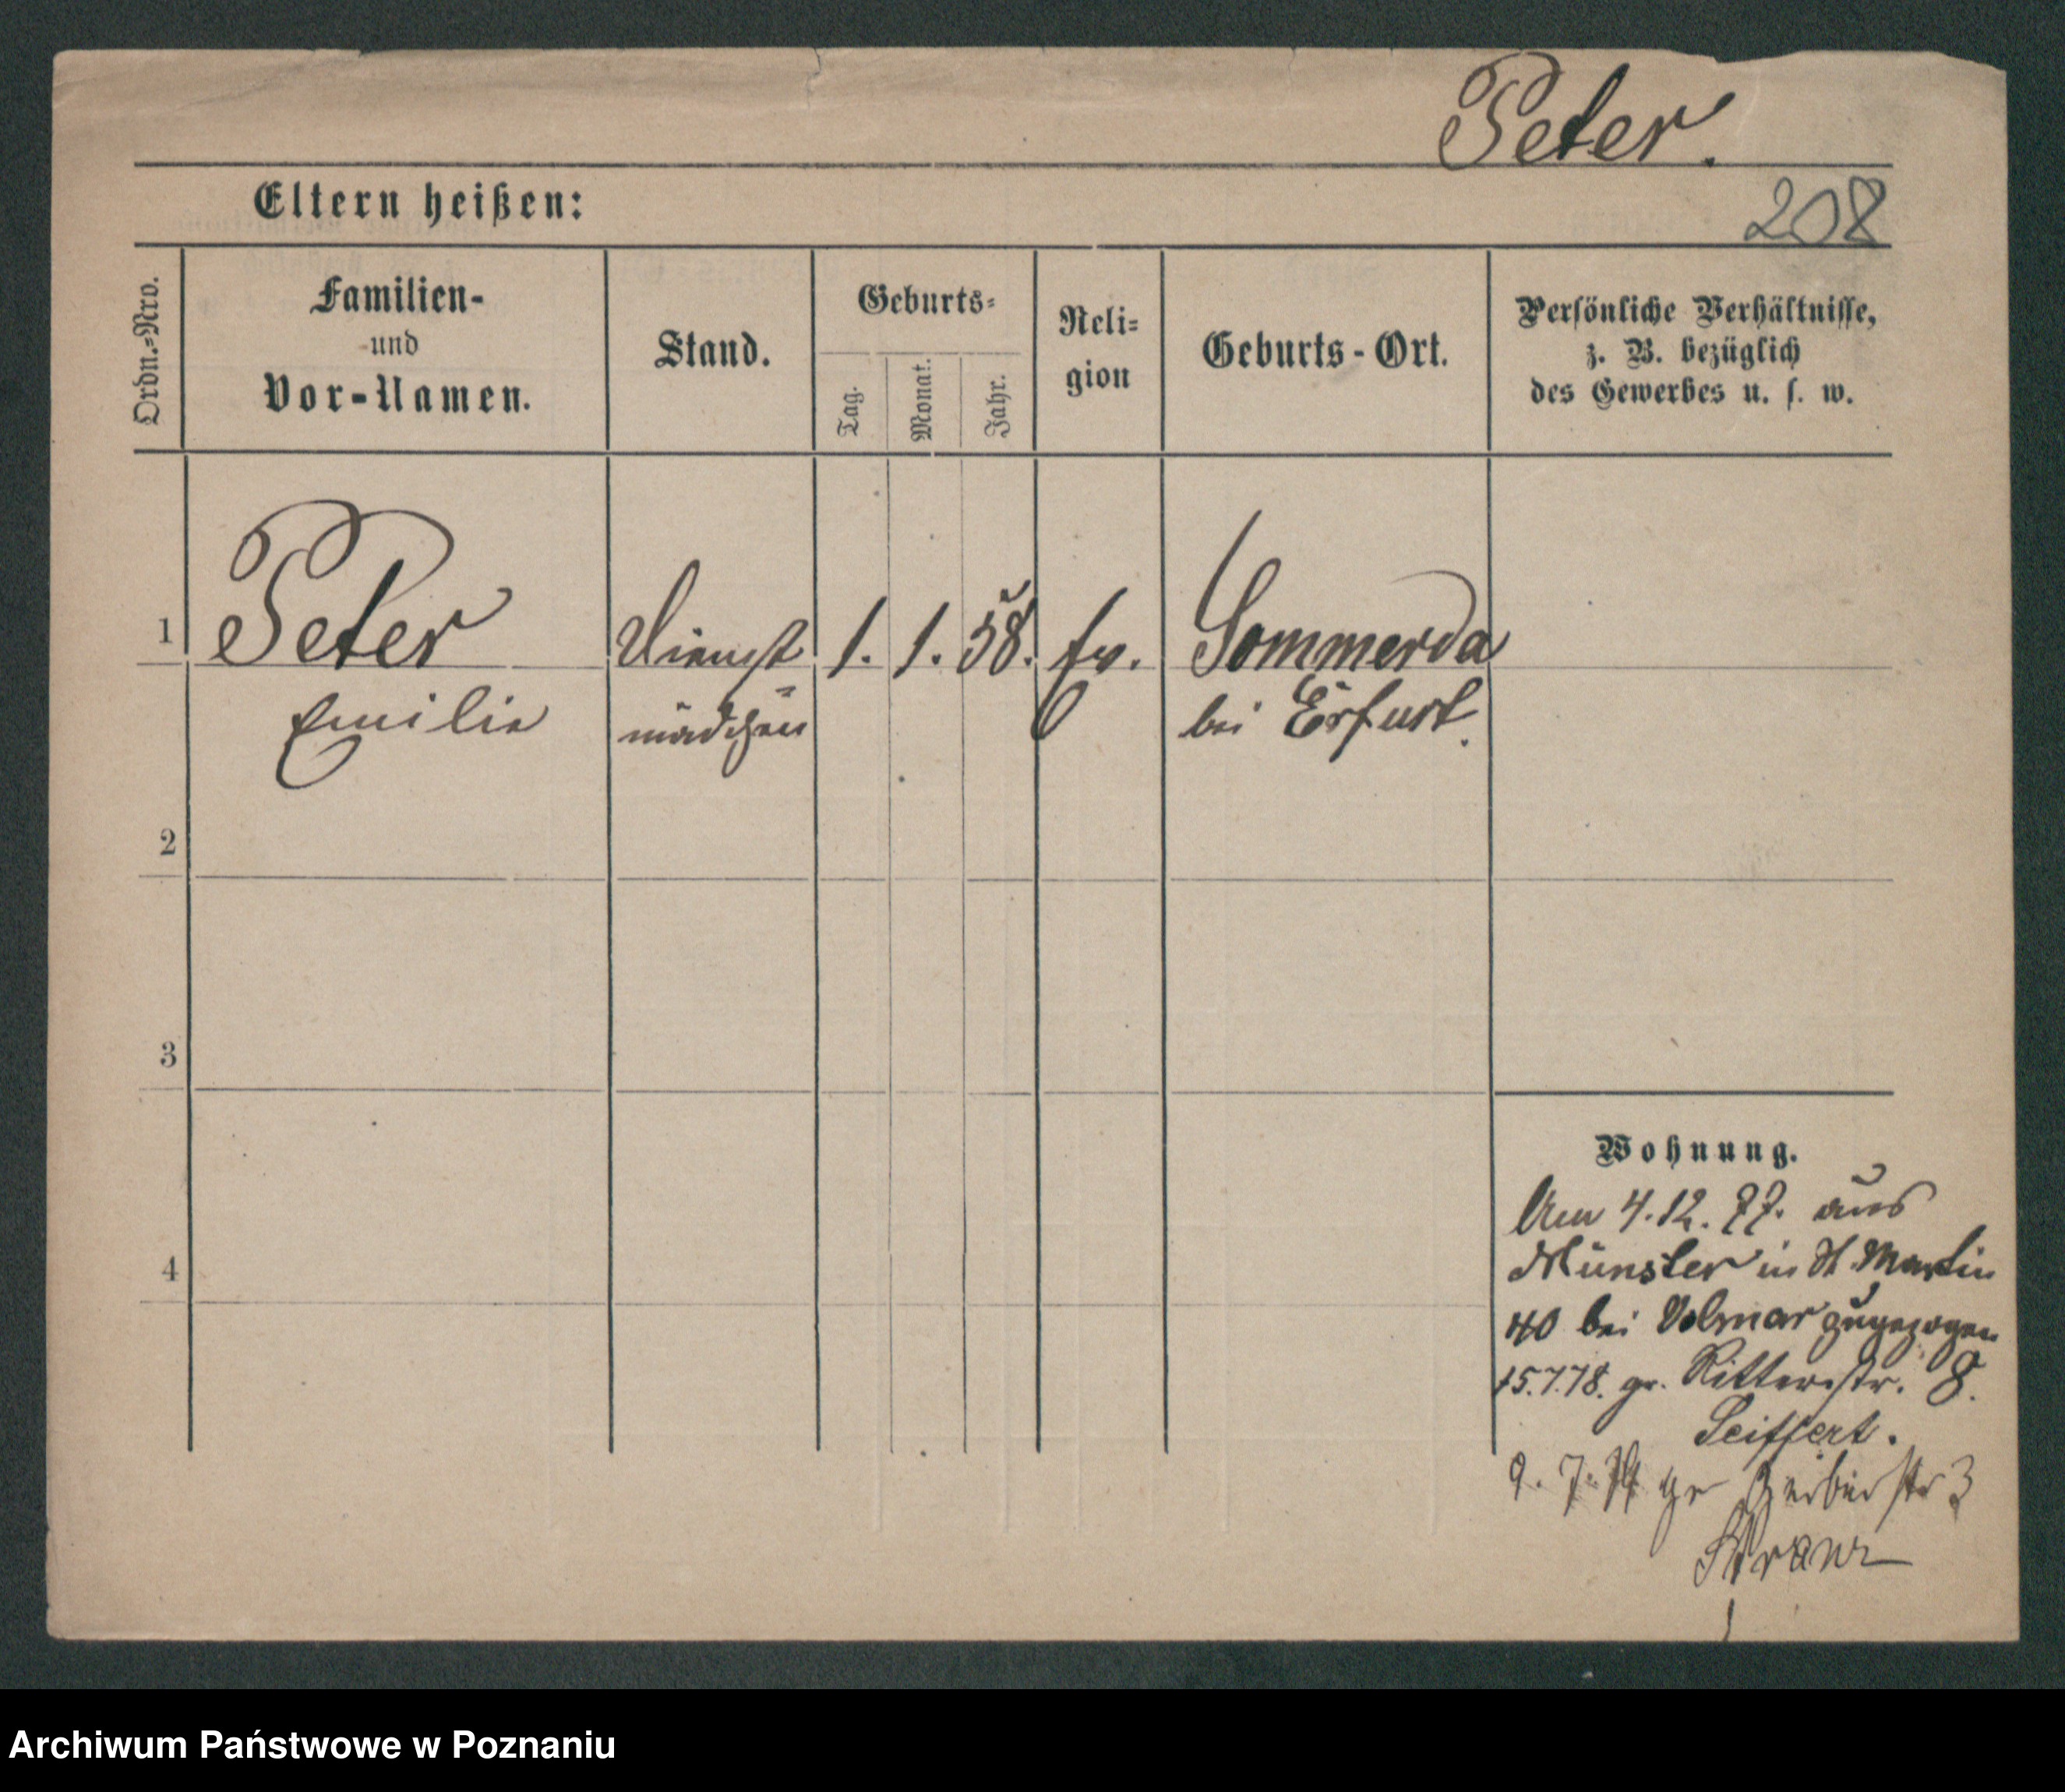 Peter.
208
Eltern heißen:
Ordn.-Nro.
Familien-
und
Vor-Namen.
Stand.
Geburts-
Tag.
Monat.
Jahr.
Reli-
gion
Geburts-Ort.
Persönliche Verhältnisse,
z. B. bezüglich
des Gewerbes u. s. w.
1 Peter Dienst 1. 1. 58. ev. Sommerda
Emilie mädchen bei Erfurt.
2
3
4
Wohnung.
Am 4.12.77. aus
Münster in St. Martin
40 bei Volmar zugezogen
15.7.78. gr. Ritterstr. 8.
Seiffert.
9. 7. gr Gerberstr 3
Archiwum Państwowe w Poznaniu